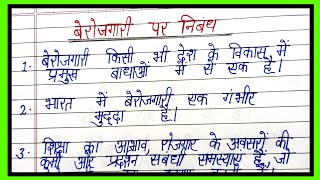 बेरोजगारी पर निबंध
1. बेरोजगारी किसी भी देश के विकास में
प्रमुख बाधाओं में से एक है।
2. भारत में बेरोजगारी एक गंभीर
मुद्दा है।
3. शिक्षा का अभाव, रोजगार के अवसरों की
कमी और प्रदर्शन संबंधी समस्याएं हैं, जो